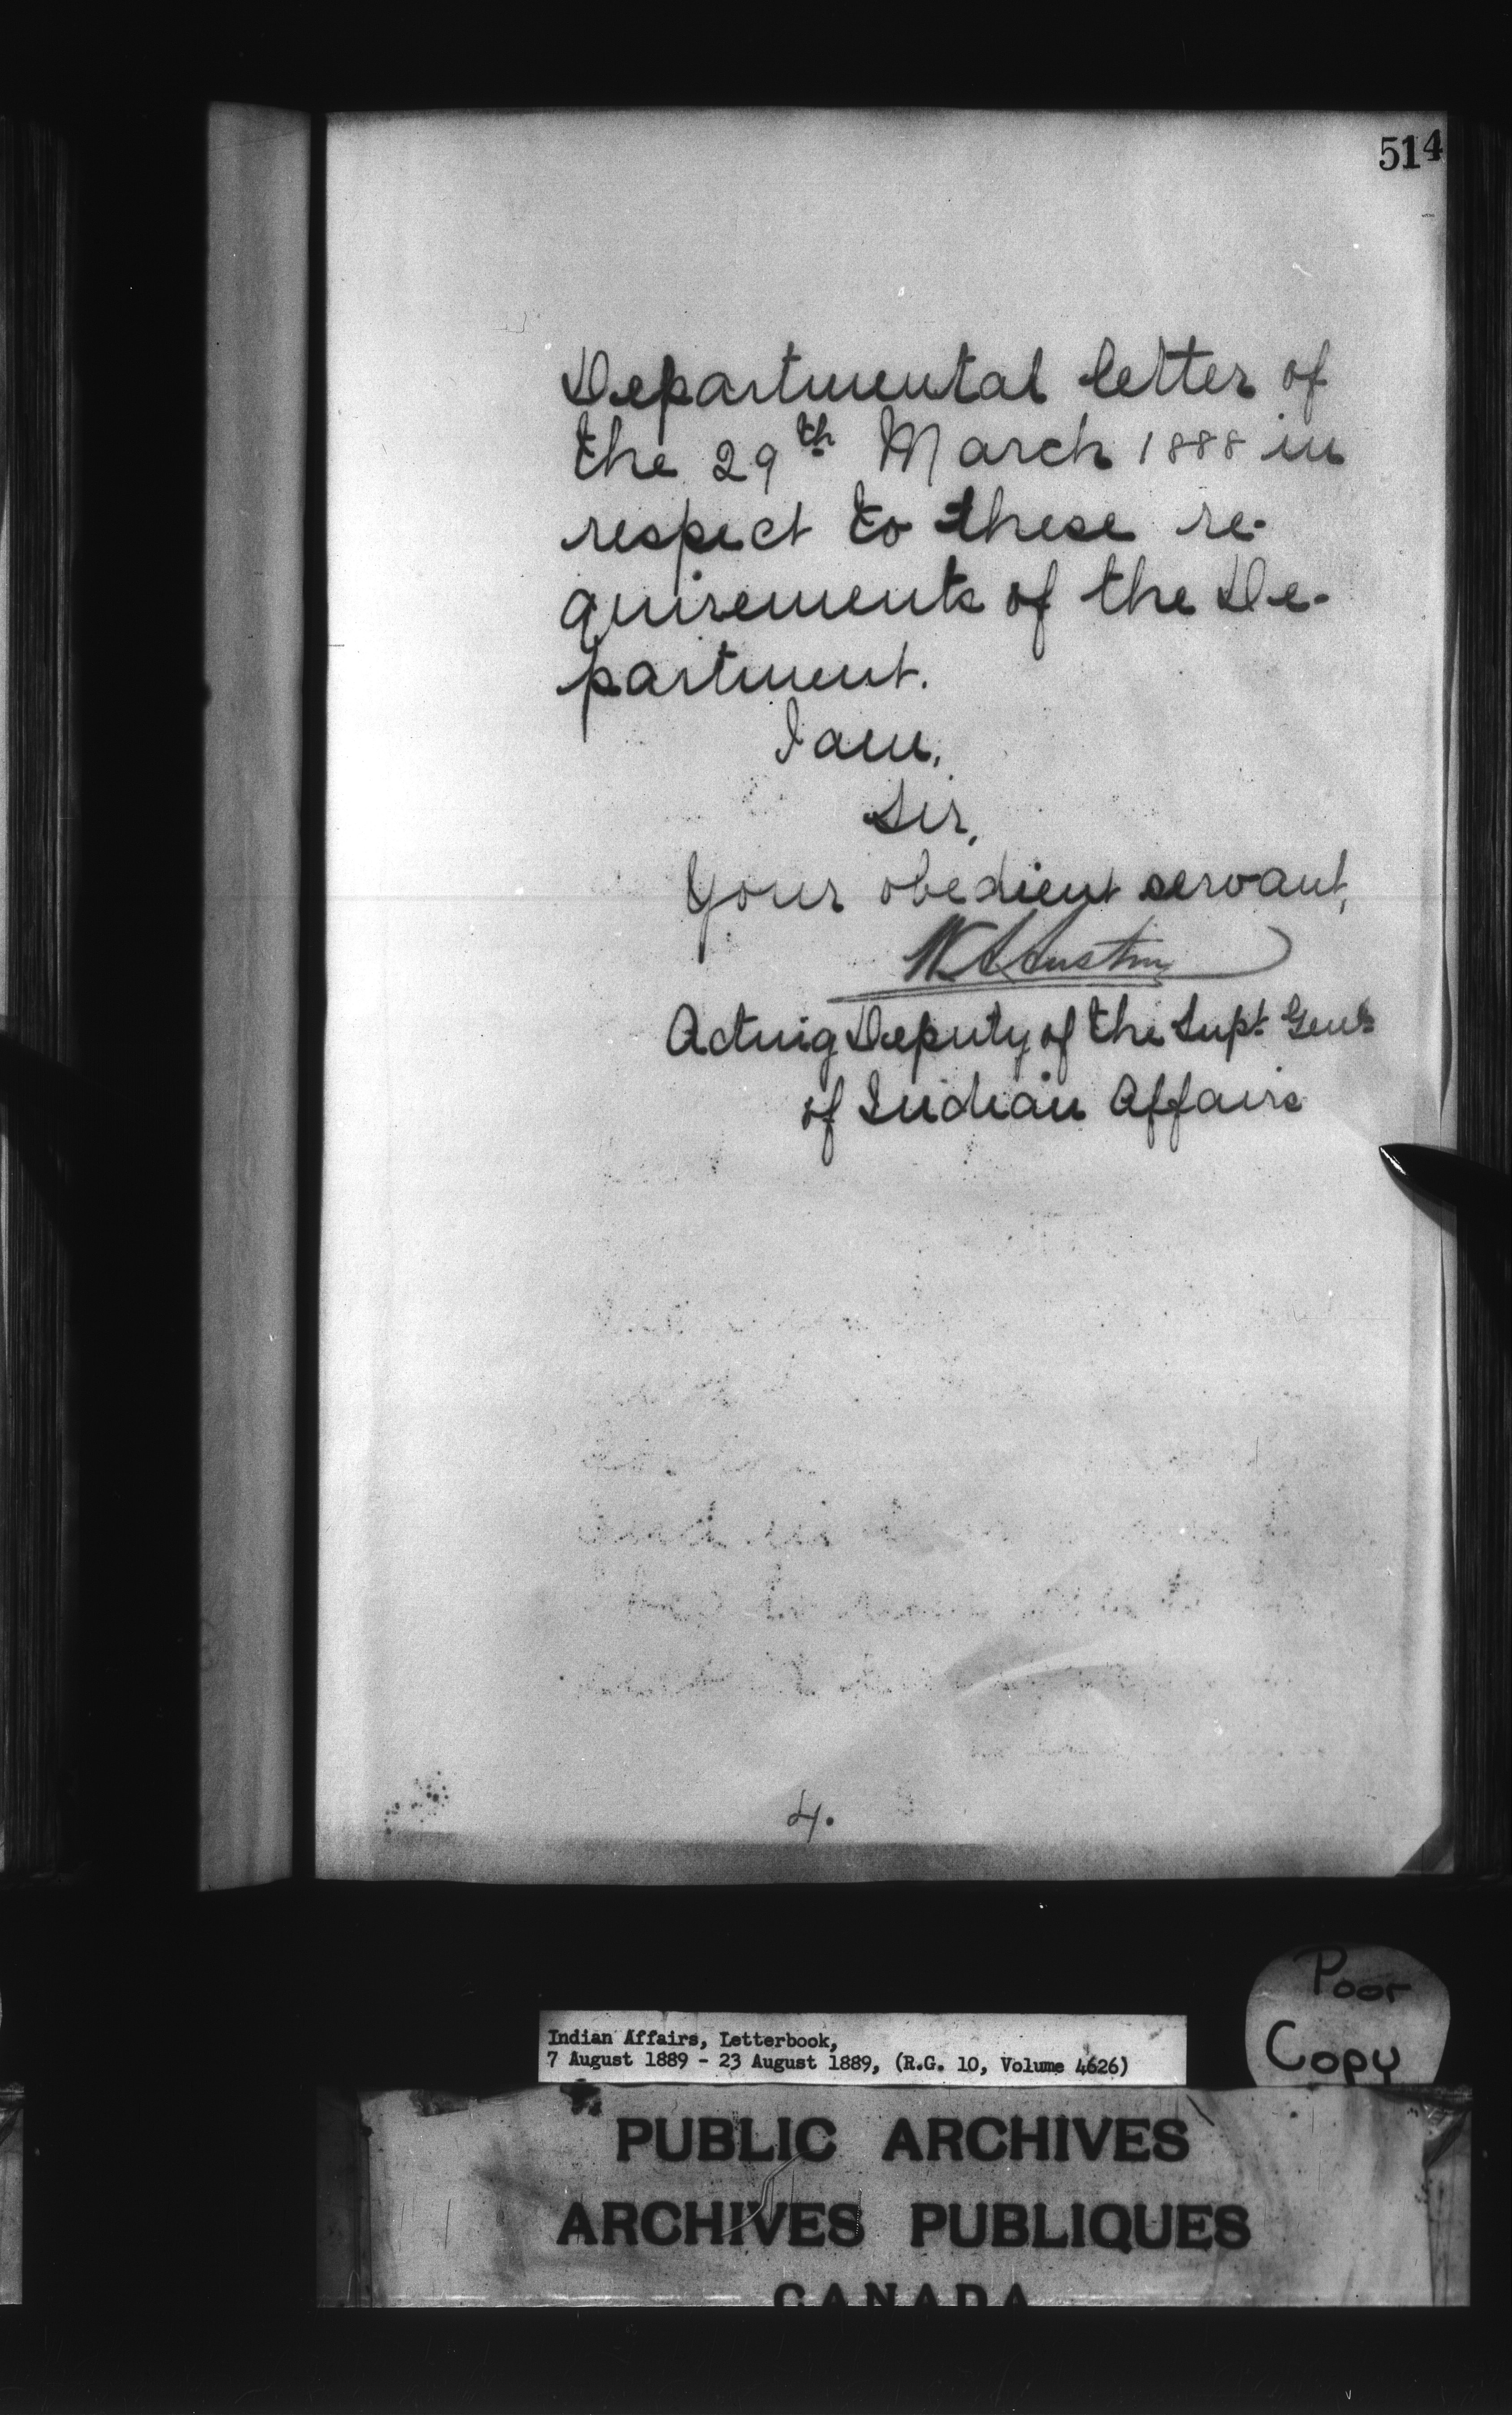 514
Departmental letter of
the 29th March 1888 in
respect to these re-
quirements of the De-
partment.
I am,
Sir,
Your obedient servant,
W A Austin
Acting Deputy of the Supt. Genl.
of Indian Affairs
4.
Poor
Copy
Indian Affairs, Letterbook,
7 August 1889 - 23 August 1889, (R.G. 10, Volume 4626)
PUBLIC ARCHIVES
ARCHIVES PUBLIQUES
CANADA